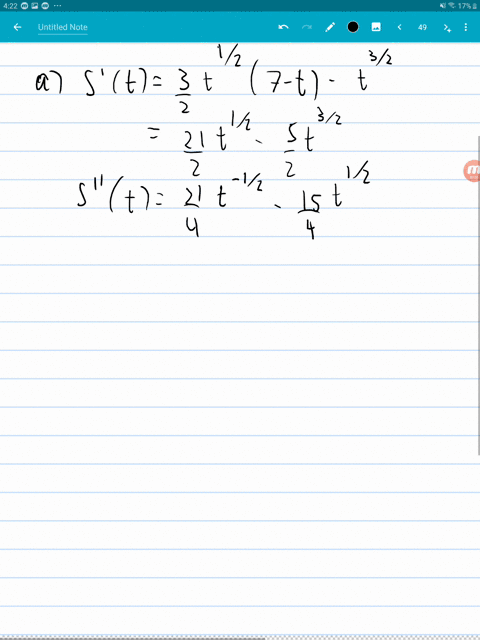 4:22 17%
Untitled Note 49
a) S'(t) = 3/2 t^1/2 (7-t) - t^3/2
= 21/2 t^1/2 - 5/2 t^3/2
S''(t) = 21/4 t^-1/2 - 15/4 t^1/2